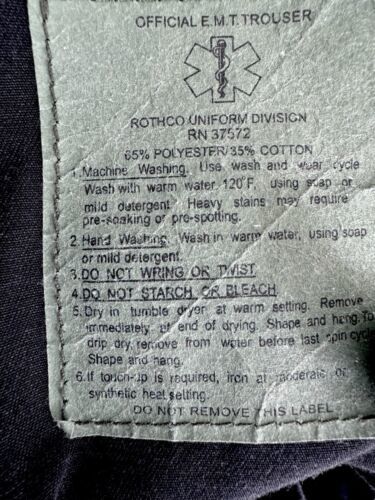 OFFICIAL E.M.T. TROUSER
ROTHCO UNIFORM DIVISION
RN 37572
65% POLYESTER/35% COTTON
1. Machine Washing. Use wash and wear cycle
Wash with warm water, 120°F, using soap or
mild detergent. Heavy stains may require
pre-soaking or pre-spotting.
2. Hand Washing. Wash in warm water, using soap
or mild detergent.
3. DO NOT WRING OR TWIST
4. DO NOT STARCH OR BLEACH
5. Dry in tumble dryer at warm setting. Remove
immediately at end of drying. Shape and hang. To
drip dry, remove from water before last spin cycle
Shape and hang.
6. If touch-up is required, iron at moderate or
synthetic heat setting.
DO NOT REMOVE THIS LABEL